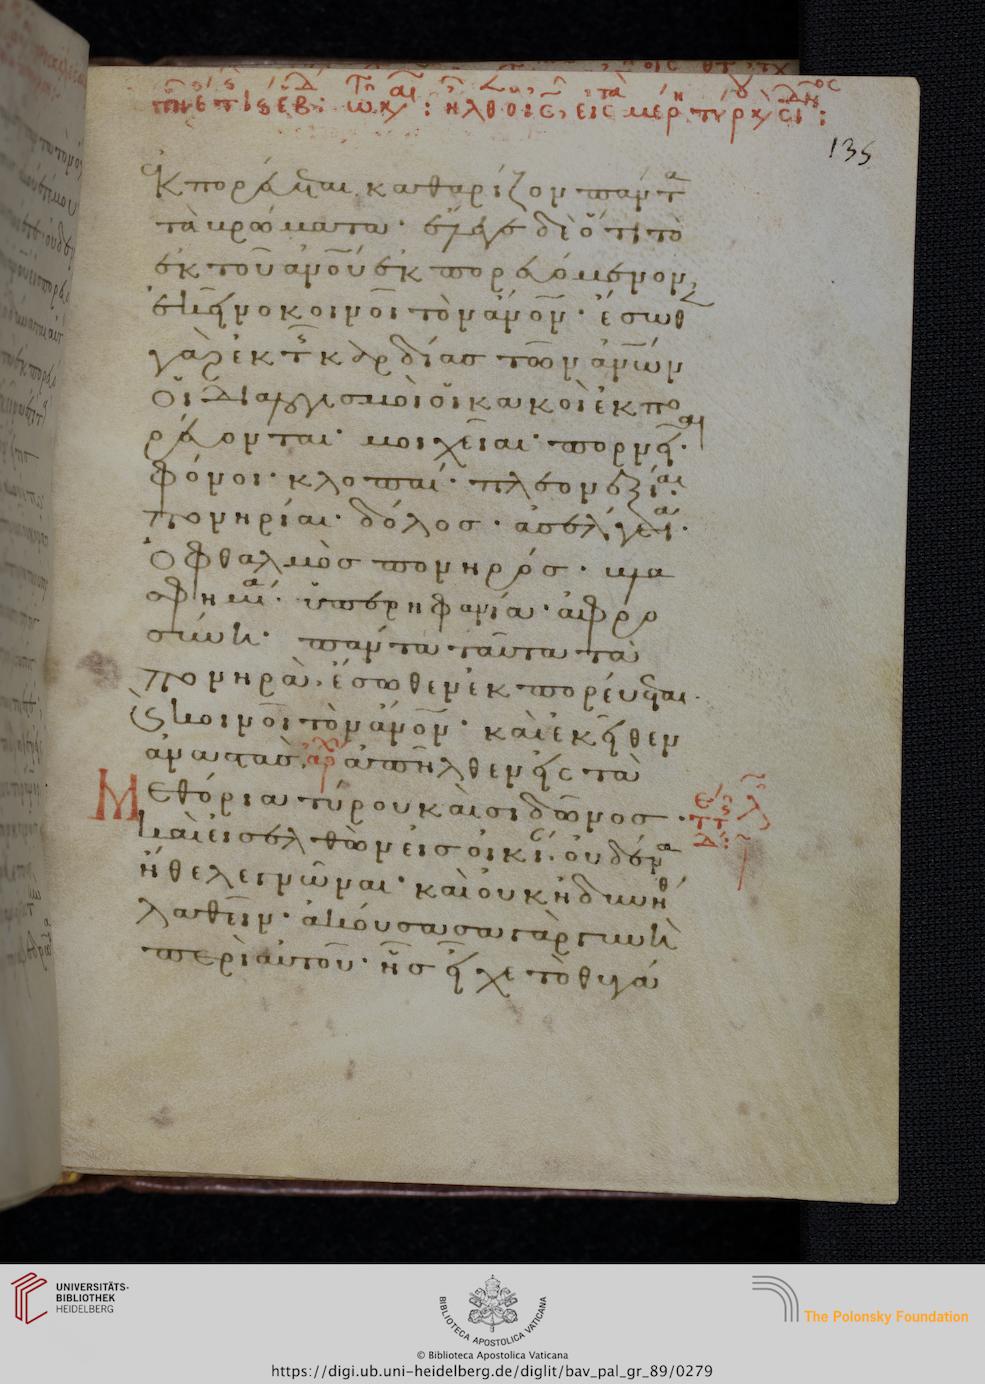 135
ἐκπορεύεται καθαρίζον πάντα
τὰ βρώματα· ἔλεγε δὲ ὅτι τὸ
ἐκ τοῦ ἀνοῦ ἐκπορευόμενον,
ἐκεῖνο κοινοῖ τὸν ἄνον· ἔσωθεν
γὰρ ἐκ τῆς καρδίας τῶν ἀνων
οἱ διαλογισμοὶ οἱ κακοὶ ἐκπο
ρεύονται· μοιχεῖαι· πορνεῖαι·
φόνοι· κλοπαί· πλεονεξίαι·
πονηρίαι· δόλος· ἀσέλγειαι·
ὀφθαλμὸς πονηρός· βλα
σφημία· ὑπερηφανία· ἀφρο
σύνη· πάντα ταῦτα τὰ
πονηρὰ ἔσωθεν ἐκπορεύεται
καὶ κοινοῖ τὸν ἄνον· καὶ ἐκεῖθεν
ἀναστὰς ἀρχ ἀπῆλθεν εἰς τὰ
Μεθόρια τύρου καὶ σιδῶνος·
καὶ εἰσελθὼν εἰς οἰκίαν· οὐδένα
ἤθελε γνῶναι· καὶ οὐκ ἠδυνήθη
λαθεῖν· ἀκούσασα γὰρ γυνὴ
περὶ αὐτοῦ· ἧς εἶχε τὸ θυγά
UNIVERSITÄTS-
BIBLIOTHEK
HEIDELBERG
BIBLIOTECA APOSTOLICA VATICANA
The Polonsky Foundation
© Biblioteca Apostolica Vaticana
https://digi.ub.uni-heidelberg.de/diglit/bav_pal_gr_89/0279